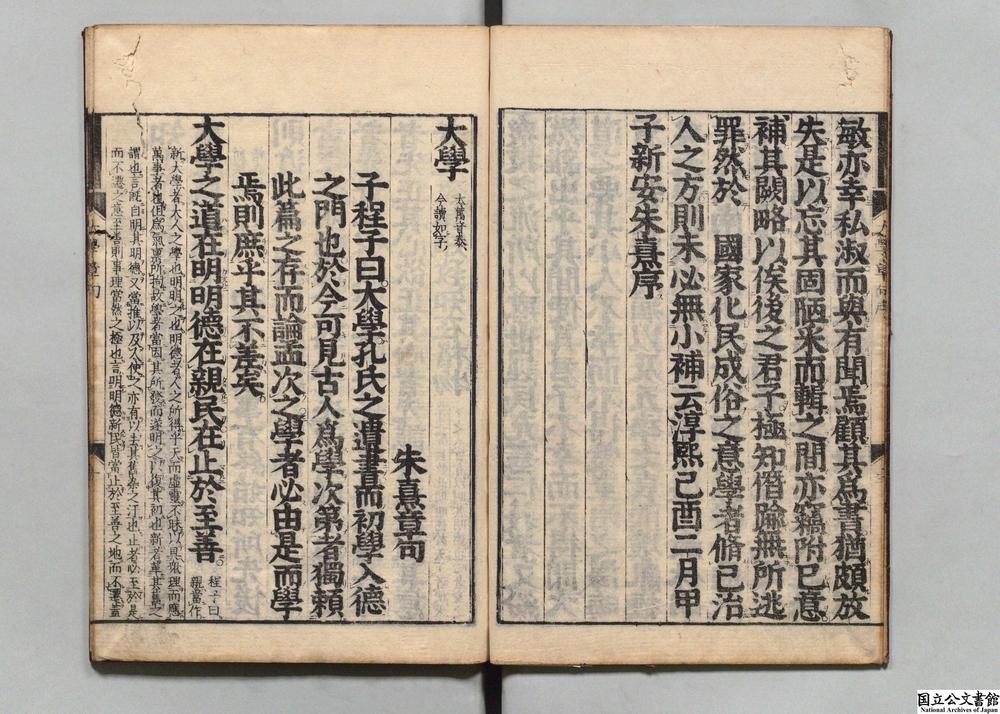 敏亦幸私淑而與有聞焉顧其爲書猶頗放
失是以忘其固陋釆而輯之間亦竊附已意
補其闕略以俟後之君子極知僭踰無所逃
罪然於 國家化民成俗之意學者脩已治
人之方則未必無小補云淳熙己酉二月甲
子新安朱熹序
大學
大舊音泰
今讀如字
朱熹章句
子程子曰大學孔氏之遺書而初學入德
之門也於今可見古人爲學次第者獨賴
此篇之存而論孟次之學者必由是而學
焉則庶乎其不差矣
大學之道在明明德在親民在止於至善
程子曰
親當作
新大學者大人之學也明明之也明德者人之所得乎天而虛靈不昧以具衆理而應
萬事者也但爲氣稟所拘故學者當因其所發而遂明之以復其初也新者革其舊之
謂也言旣自明其明德又當推以及人使之亦有以去其舊染之汙也止者必至於是
而不遷之意至善則事理當然之極也言明明德新民皆當止於至善之地而不遷蓋
国立公文書館
National Archives of Japan